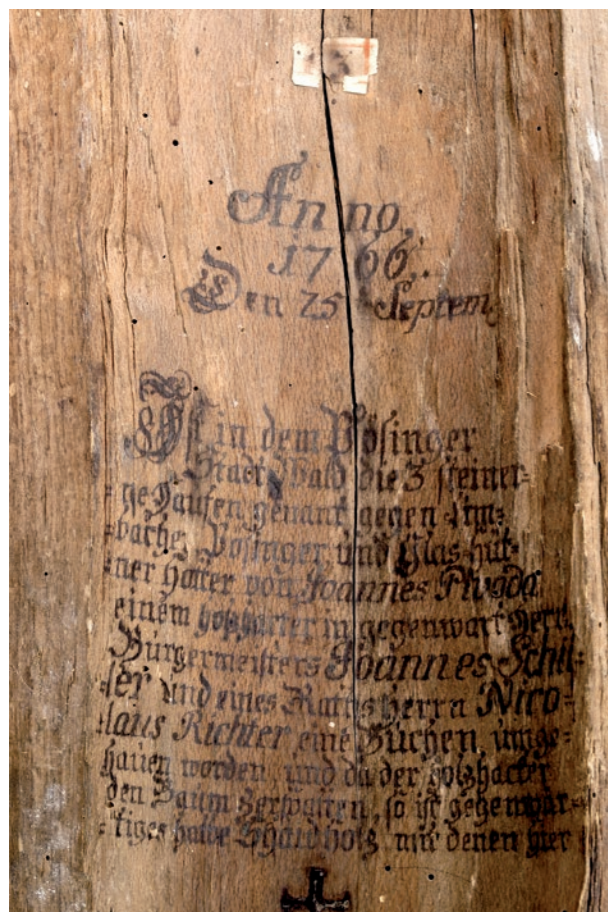 Anno,
1766,
Den 25 Septem,
Ist in dem Pösinger
Stadt Wald die 3 steiner=
=ge Haufen genant gegen Lim=
=bacher Posinger und Glas-hüt=
=ner Hotter von Joannes Pivoda
einem holzhacker in gegenwart Herrn
Bürgermeisters Joannes Schil=
=ler und eines Raths Herrn Nico=
=laus Richter eine Buchen umge=
hauen worden, und da der holzhacker
den Baum zerspalten, so ist gegenwär=
=tiges halbe holz mit denen hier